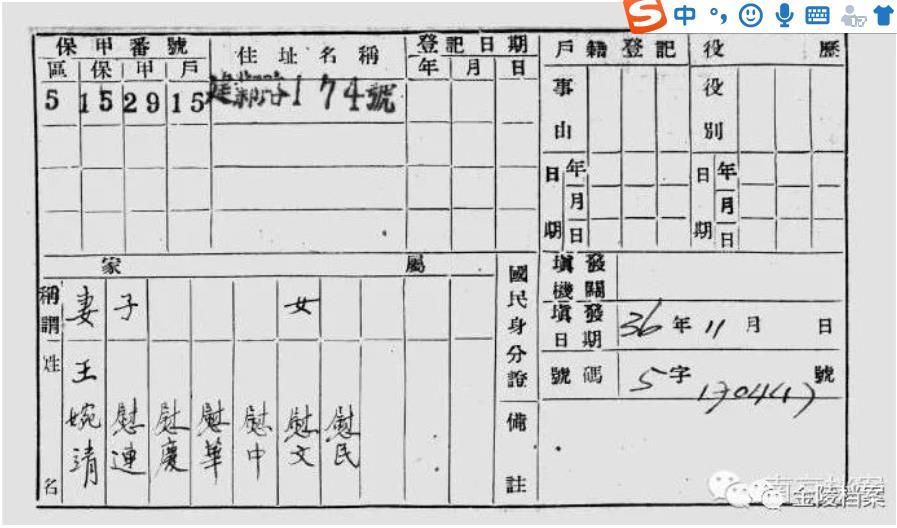 中
保甲番號
住址名稱
登記日期
區 保 甲 戶
年 月 日
5 15 29 15
174號
戶籍登記
役歷
事由
役別
日期
年
月
日
日期
年
月
日
家屬
稱謂
妻 子 女
姓名
王婉靖
慰連
慰慶
慰華
慰中
慰文
慰民
國民身分證
備註
填發機關
填發日期
36年11月 日
號碼
5字170447號
金陵档案